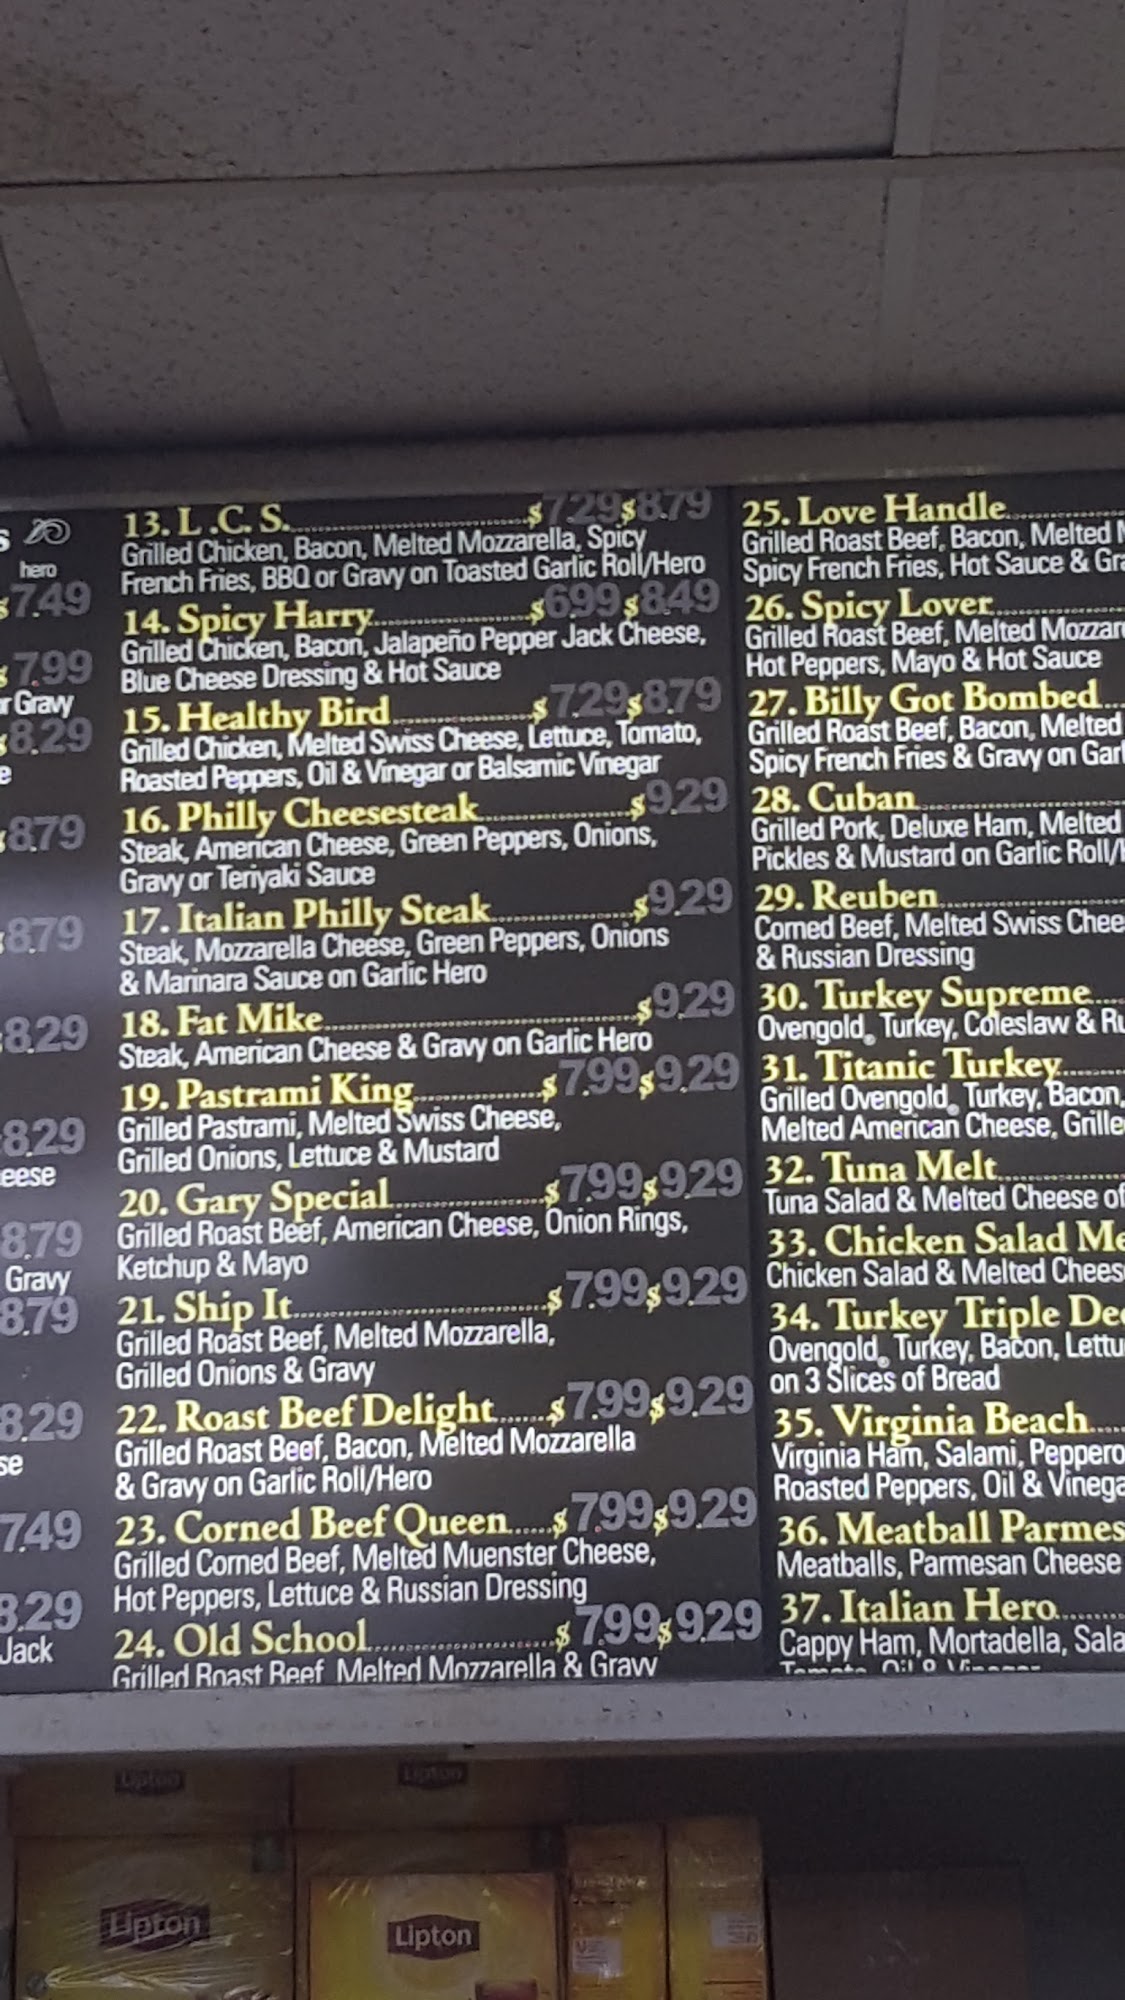 s
hero
$7.49
$7.99
r Gravy
$8.29
e
$8.79
$8.79
$8.29
8.29
eese
8.79
Gravy
8.79
8.29
se
7.49
8.29
Jack
13. L .C. S. $7.29 $8.79
Grilled Chicken, Bacon, Melted Mozzarella, Spicy
French Fries, BBQ or Gravy on Toasted Garlic Roll/Hero
14. Spicy Harry $6.99 $8.49
Grilled Chicken, Bacon, Jalapeño Pepper Jack Cheese,
Blue Cheese Dressing & Hot Sauce
15. Healthy Bird $7.29 $8.79
Grilled Chicken, Melted Swiss Cheese, Lettuce, Tomato,
Roasted Peppers, Oil & Vinegar or Balsamic Vinegar
16. Philly Cheesesteak $9.29
Steak, American Cheese, Green Peppers, Onions,
Gravy or Teriyaki Sauce
17. Italian Philly Steak $9.29
Steak, Mozzarella Cheese, Green Peppers, Onions
& Marinara Sauce on Garlic Hero
18. Fat Mike $9.29
Steak, American Cheese & Gravy on Garlic Hero
19. Pastrami King $7.99 $9.29
Grilled Pastrami, Melted Swiss Cheese,
Grilled Onions, Lettuce & Mustard
20. Gary Special $7.99 $9.29
Grilled Roast Beef, American Cheese, Onion Rings,
Ketchup & Mayo
21. Ship It $7.99 $9.29
Grilled Roast Beef, Melted Mozzarella,
Grilled Onions & Gravy
22. Roast Beef Delight $7.99 $9.29
Grilled Roast Beef, Bacon, Melted Mozzarella
& Gravy on Garlic Roll/Hero
23. Corned Beef Queen $7.99 $9.29
Grilled Corned Beef, Melted Muenster Cheese,
Hot Peppers, Lettuce & Russian Dressing
24. Old School $7.99 $9.29
Grilled Roast Beef, Melted Mozzarella & Gravy
25. Love Handle
Grilled Roast Beef, Bacon, Melted M
Spicy French Fries, Hot Sauce & Gra
26. Spicy Lover
Grilled Roast Beef, Melted Mozzar
Hot Peppers, Mayo & Hot Sauce
27. Billy Got Bombed
Grilled Roast Beef, Bacon, Melted
Spicy French Fries & Gravy on Garl
28. Cuban
Grilled Pork, Deluxe Ham, Melted
Pickles & Mustard on Garlic Roll/
29. Reuben
Corned Beef, Melted Swiss Chee
& Russian Dressing
30. Turkey Supreme
Ovengold® Turkey, Coleslaw & Ru
31. Titanic Turkey
Grilled Ovengold® Turkey, Bacon,
Melted American Cheese, Grille
32. Tuna Melt
Tuna Salad & Melted Cheese of
33. Chicken Salad Me
Chicken Salad & Melted Chees
34. Turkey Triple Dec
Ovengold® Turkey, Bacon, Lettu
on 3 Slices of Bread
35. Virginia Beach
Virginia Ham, Salami, Peppero
Roasted Peppers, Oil & Vinega
36. Meatball Parmes
Meatballs, Parmesan Cheese
37. Italian Hero
Cappy Ham, Mortadella, Sala
Tomato, Oil & Vinegar
Lipton
Lipton
Lipton
Lipton